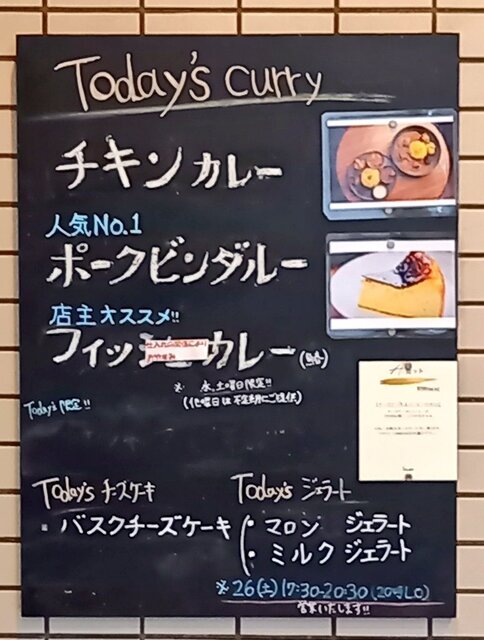 Today's curry
チキンカレー
人気No.1
ポークビンダルー
店主オススメ!!
フィッシュカレー
おやすみ
※ 水、土曜日限定!!
(他曜日は不定期にご提供)
Today's 限定!!
Today's チーズケーキ
バスクチーズケーキ
Today's ジェラート
・マロン ジェラート
・ミルク ジェラート
※26(土)17:30-20:30(20時LO)
営業いたします!!